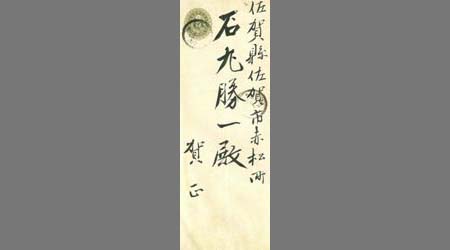 佐賀縣佐賀市赤松町
石丸勝一殿
賀正